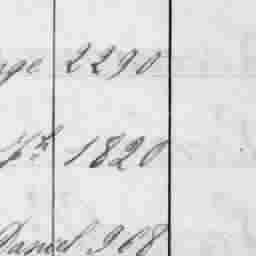 2290
1820
Daniel 968